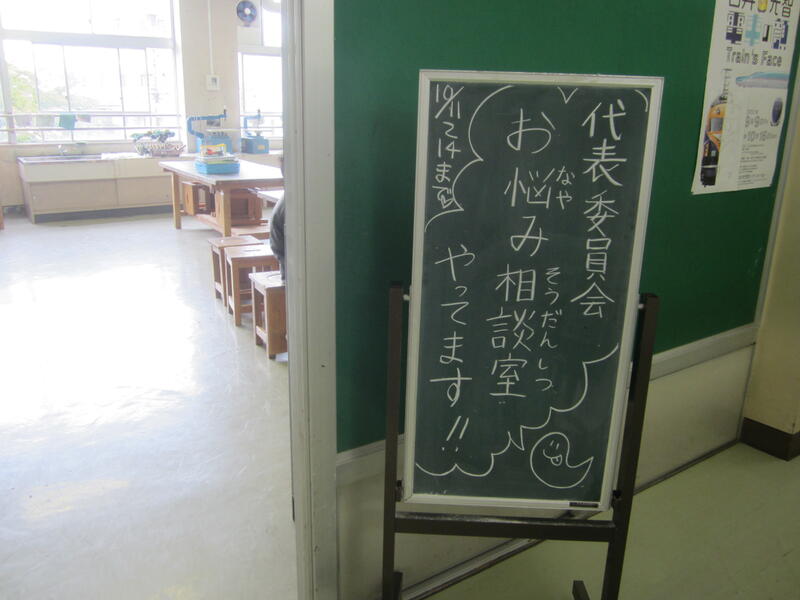 代表委員会
お悩み相談室
なや
そうだんしつ
やってます!!
10/11〜14まで
電車の顔
Train's Face